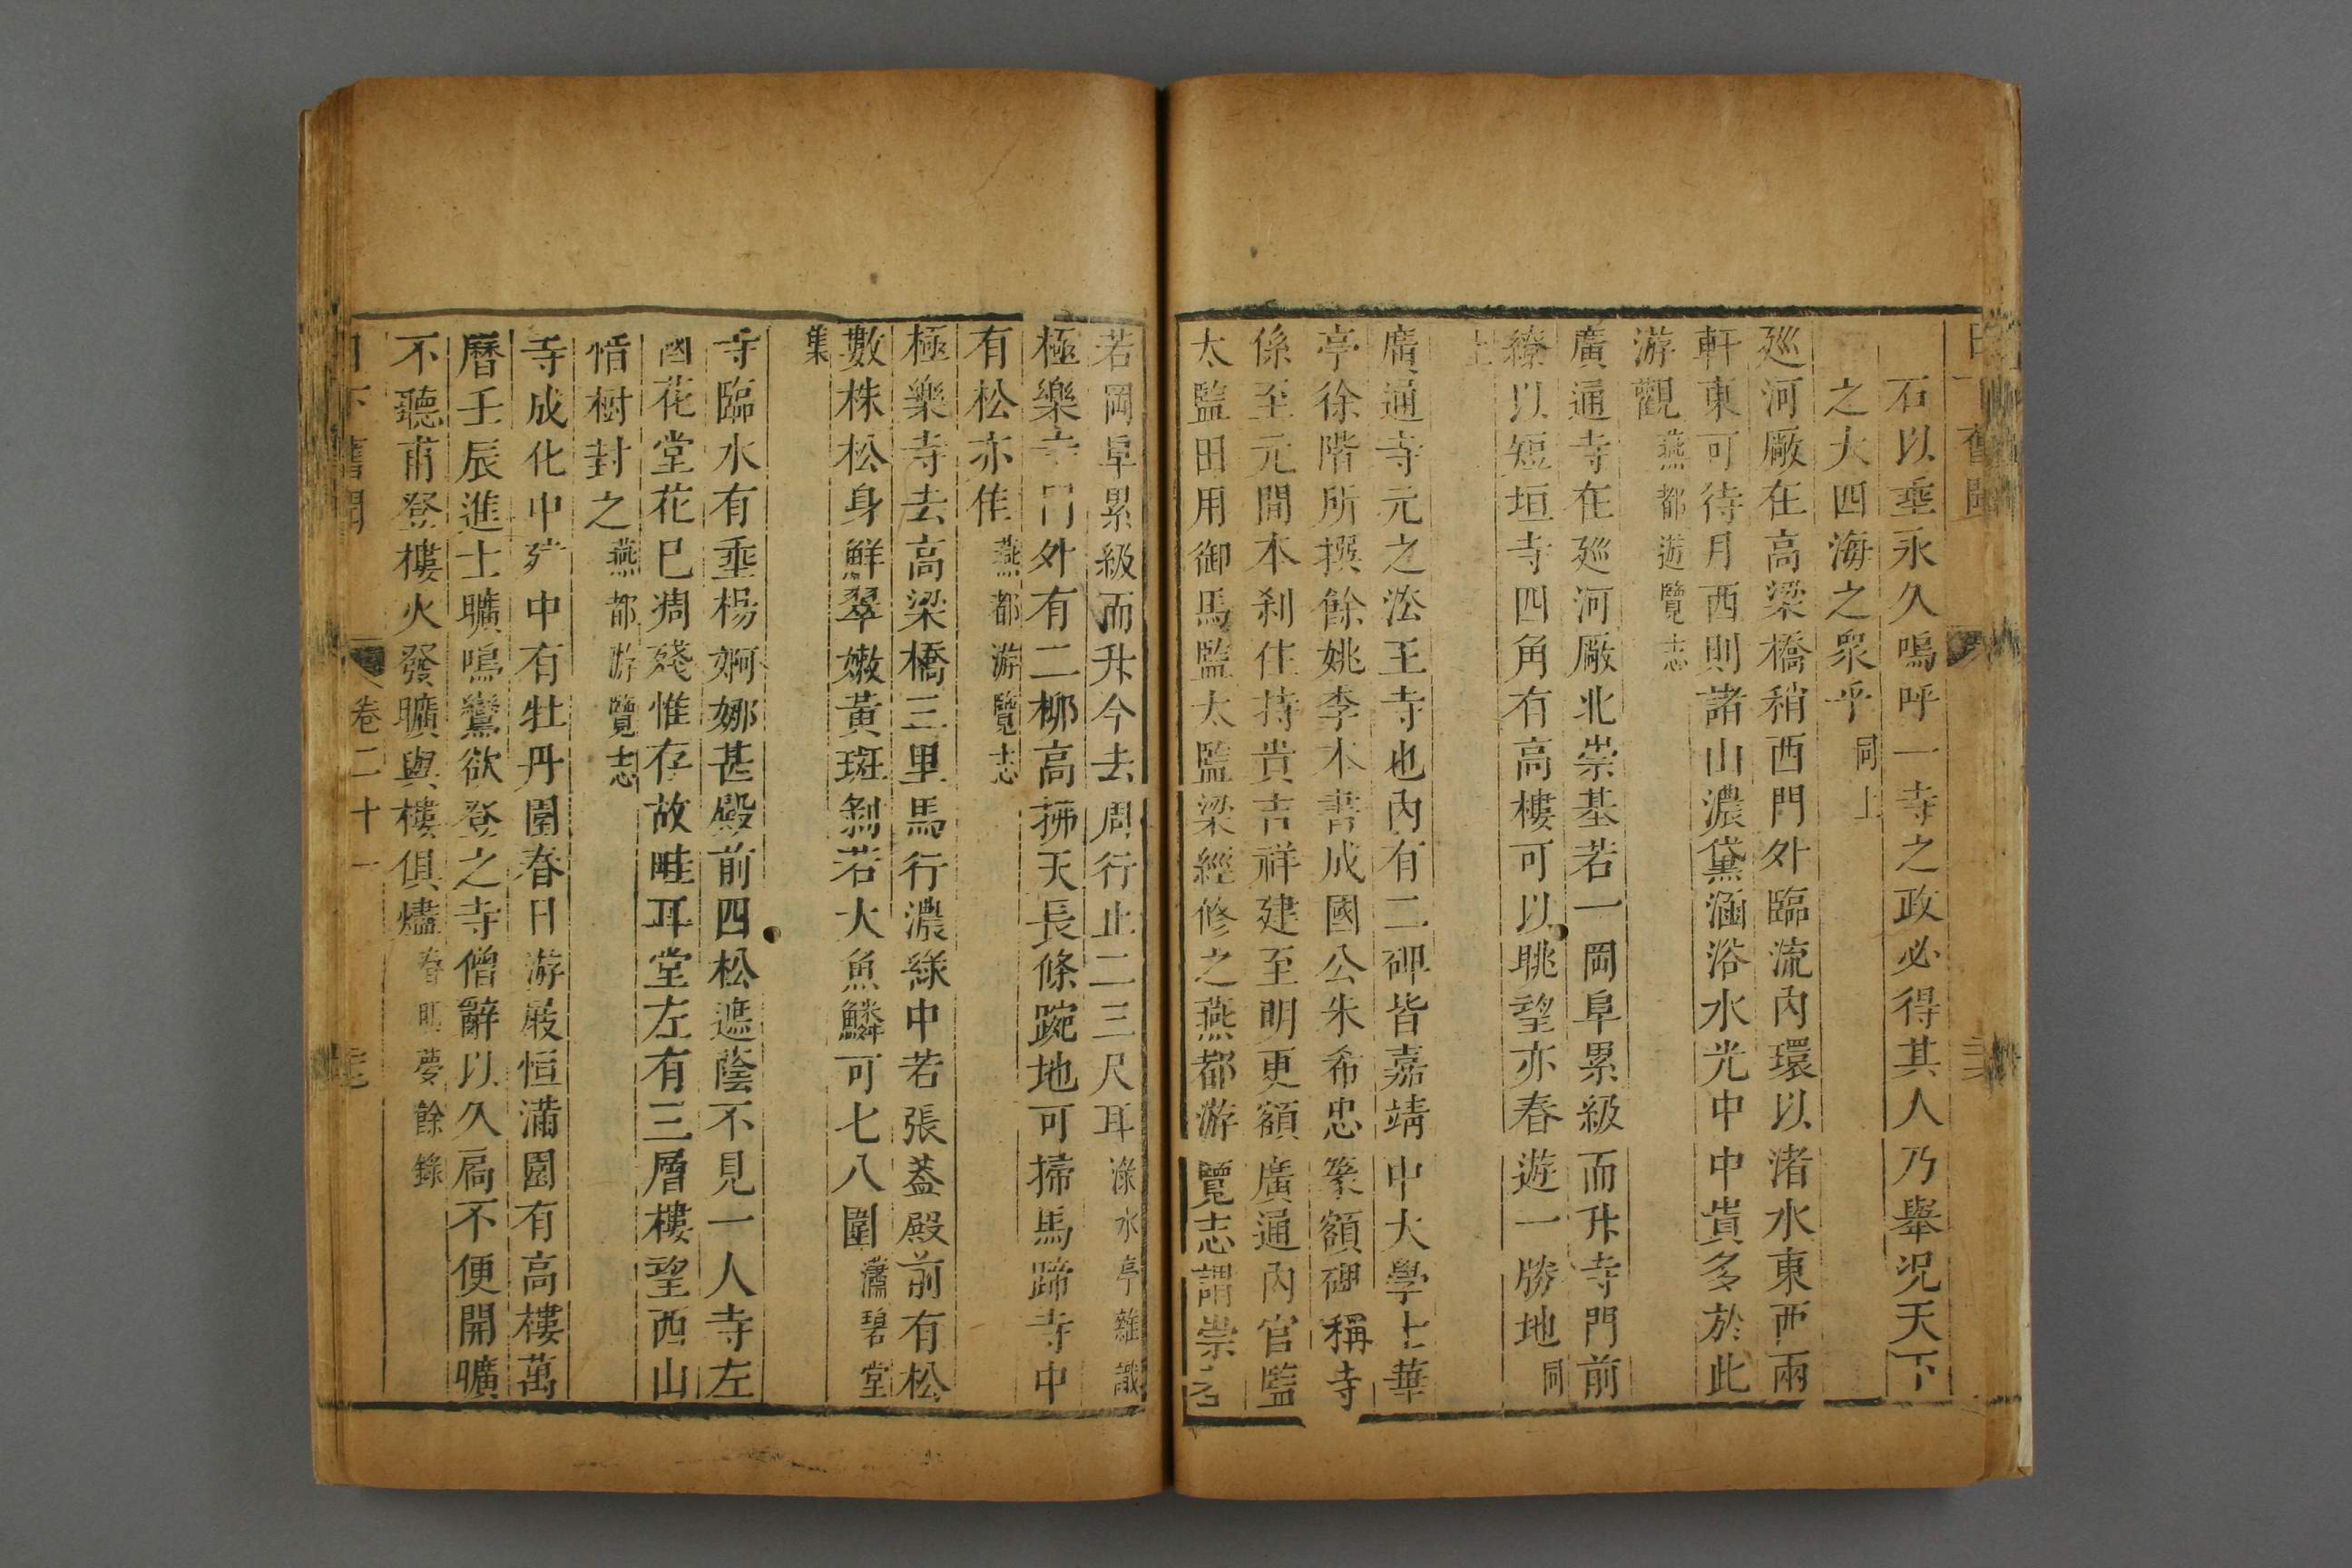 石以垂永久嗚呼一寺之政必得其人乃舉況天下
之大四海之衆乎同上
廵河厰在高梁橋稍西門外臨流內環以渚水東西兩
軒東可待月西則諸山濃黛涵浴水光中中貴多於此
游觀燕都遊覽志
廣通寺在廵河厰北崇基若一岡阜累級而升寺門前
繚以短垣寺四角有高樓可以眺望亦春遊一勝地同
上
廣通寺元之法王寺也內有二碑皆嘉靖中大學士華
亭徐階所撰餘姚李本書成國公朱希忠篆額碑稱寺
係至元間本刹住持貴吉祥建至明更額廣通內官監
太監田用御馬監太監梁經修之燕都游覽志謂崇基
若岡阜累級而升今去周行止二三尺耳淥水亭雜識
極樂寺門外有二栁高拂天長條踠地可掃馬蹄寺中
有松亦佳燕都游覽志
極樂寺去高梁橋三里馬行濃綠中若張葢殿前有松
數株松身鮮翠嫩黃斑剝若大魚鱗可七八圍瀟碧堂
集
寺臨水有垂楊婀娜甚殿前四松遮蔭不見一人寺左
國花堂花已凋殘惟存故畦耳堂左有三層樓望西山
惜樹封之燕都游覽志
寺成化中建中有牡丹園春日游厰恒滿園有高樓萬
曆壬辰進士曠鳴鸞欲登之寺僧辭以久扃不便開曠
不聽甫登樓火發曠與樓俱燼春明夢餘錄
日下舊聞 卷二十一